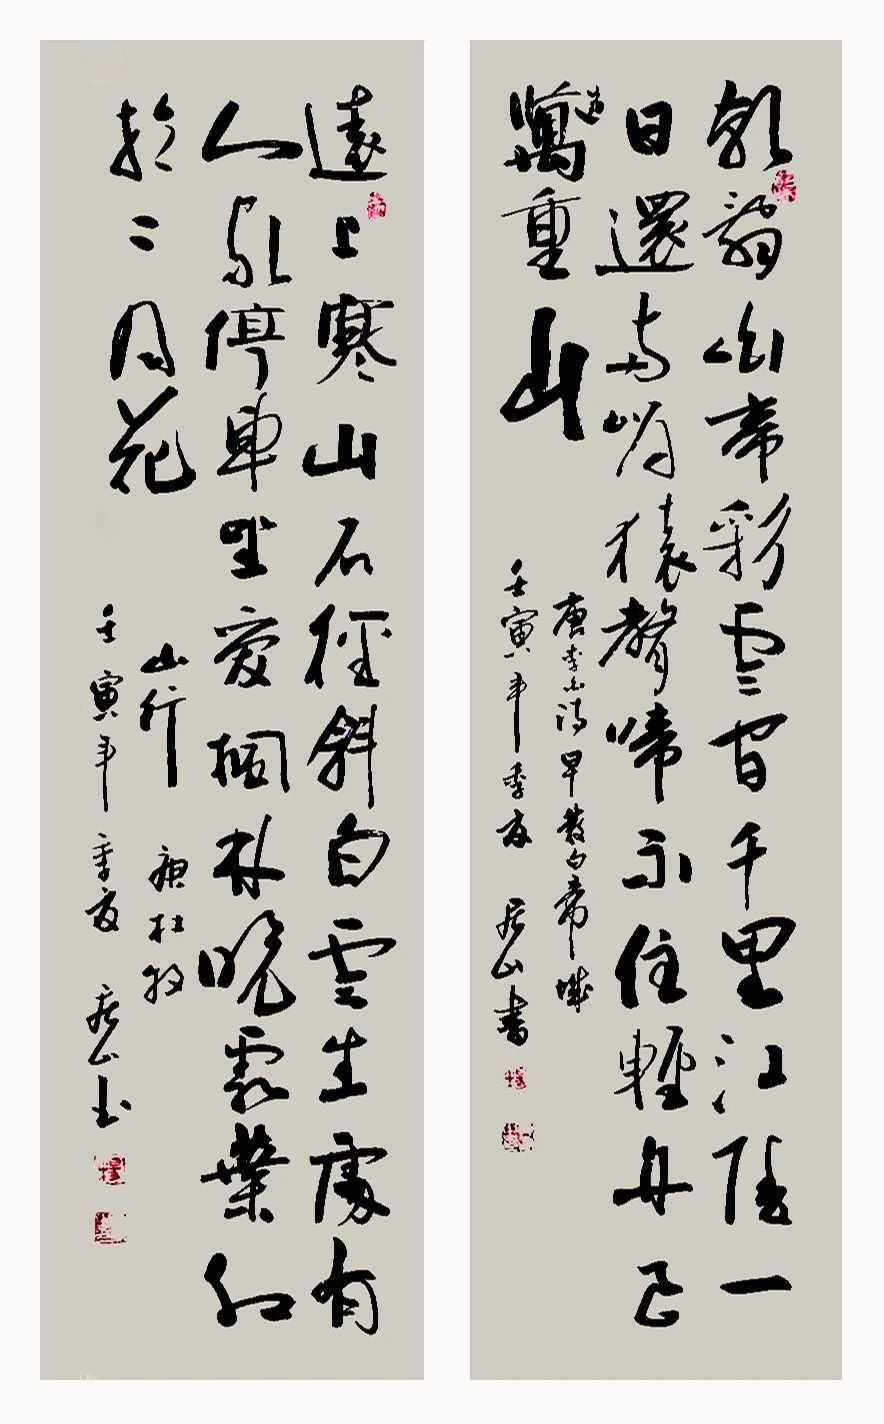 朝辭白帝彩雲間千里江陵一
日還兩岸猿聲啼不住輕舟已
過萬重山
唐李白詩早發白帝城
壬寅年季夏 居山書
遠上寒山石徑斜白雲生處有
人家停車坐愛楓林晚霜葉紅
於二月花
山行 唐杜牧
壬寅年季夏 居山书